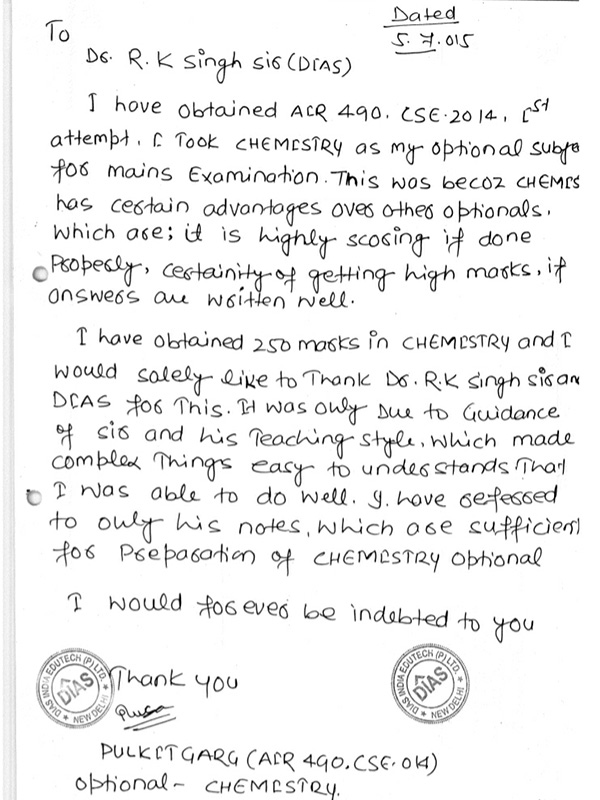 Dated
5.7.015
To
Dr. R.K Singh sir (DIAS)
I have obtained AIR 490. CSE.2014, Ist
attempt. I Took CHEMISTRY as my optional subje
for mains Examination. This was becoz CHEMIS
has certain advantages over other optionals.
Which are; it is highly scoring if done
Properly, certainity of getting high marks, if
answers are written well.
I have obtained 250 marks in CHEMISTRY and I
would solely like to Thank Dr. R.K Singh sir an
DIAS for This. It was only Due to Guidance
of sir and his Teaching style, which made
complex Things easy to understands That
I was able to do well. I. have referred
to only his notes, which are sufficient
for Preparation of CHEMISTRY optional
I would forever be indebted to you
Thank you
DIAS INDIA EDUTECH (P) LTD. ★ NEW DELHI ★
DIAS
DIAS INDIA EDUTECH (P) LTD. ★ NEW DELHI ★
DIAS
PULKIT GARG (AIR 490. CSE. 014)
optional - CHEMISTRY.